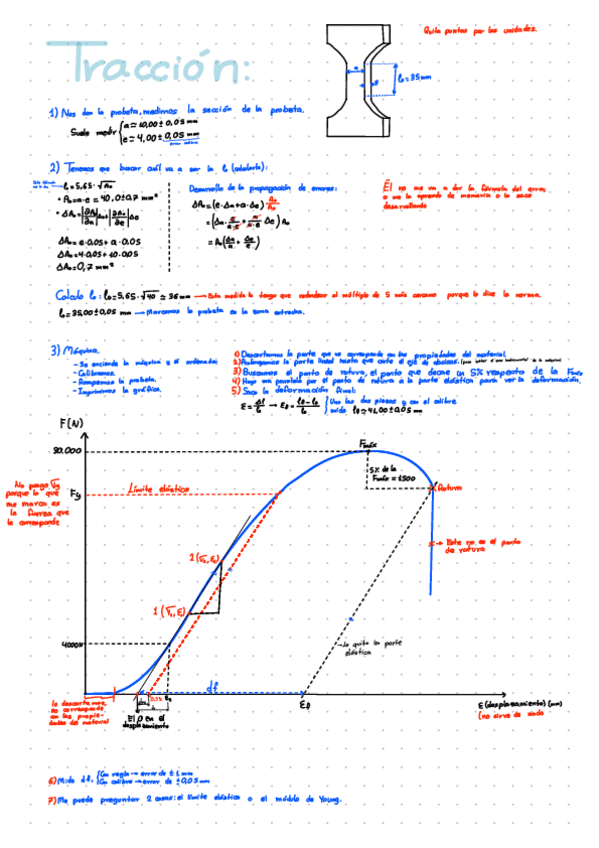 Tracción:
Quita puntos por las unidades.
a
e
l₀=35mm
1) Nos dan la probeta, medimos la sección de la probeta.
Suele medir { a≃10,00±0,05 mm
e≃4,00±0,05 mm
error calibre
2) Tenemos que buscar cuál va a ser la l₀ (calcularla):
l₀=5,65·√A₀
• A₀=a·e = 40,0±0,7 mm²
• ΔA₀=|∂A₀/∂a|Δa+|∂A₀/∂e|Δe
ΔA₀=e·0,05+a·0,05
ΔA₀=4·0,05+10·0,05
ΔA₀=0,7 mm²
Desarrollo de la propagación de errores:
ΔA₀=(e·Δa+a·Δe) A₀/A₀
=(Δa·e/a·e + a/a·e Δe) A₀
=A₀(Δa/a + Δe/e)
Él no me va a dar la fórmula del error
o me la aprendo de memoria o la saco
desarrollando
Calculo l₀: l₀=5,65·√40 ≃ 36 mm → Esta medida la tengo que redondear al múltiplo de 5 más cercano porque lo dice la norma.
l₀=35,00±0,05 mm → Marcamos la probeta en la zona estrecha.
3) Máquina.
- Se enciende la máquina y el ordenador.
- Calibramos.
- Rompemos la probeta.
- Imprimimos la gráfica.
1) Descartamos la parte que no corresponde con las propiedades del material.
2) Prolongamos la parte lineal hasta que corte el eje de abscisas.
3) Buscamos el punto de rotura, el punto que decae un 5% respecto de la Fmáx
4) Hago una paralela por el punto de rotura a la parte elástica para ver la deformación.
5) Saco la deformación final:
ε=Δl/l₀ → εf=(lf-l₀)/l₀ { Uno las dos piezas y con el calibre
mido lf≃41,00±0,05 mm
F(N)
30.000
Fmáx
5% de la
Fmáx=1500
Rotura
No pongo
porque lo que
me marca es
la fuerza que
le corresponde
Fy
Límite elástico
→ Este no es el punto
de rotura
2
1
4000N
→ le quito la parte
elástica
df
0,2%
εf
ε(desplazamiento)(mm)
(no sirve de nada
lo descartamos,
no corresponde
con las propie-
dades del material
El 0 en el
desplazamiento
6) Mido df, { Con regla → error de ±1mm
Con calibre → error de ±0,05mm
7) Me puede preguntar 2 cosas: el límite elástico o el módulo de Young.